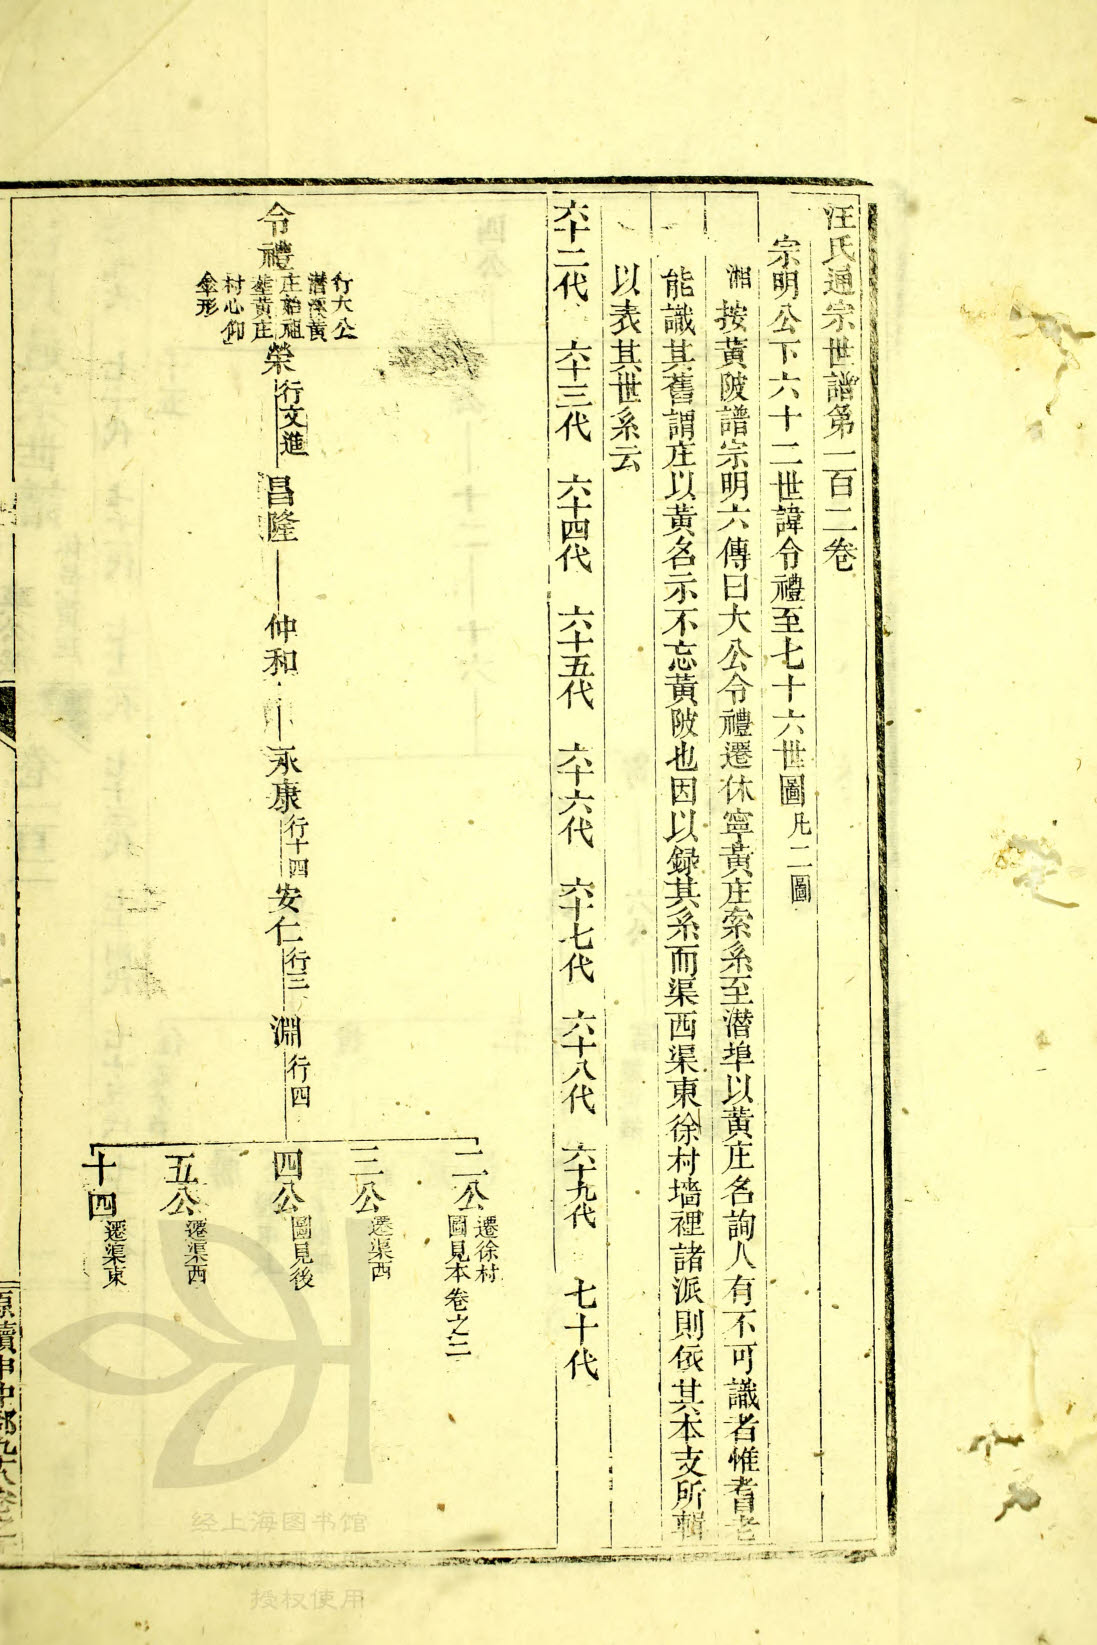 汪氏通宗世譜第一百二卷
宗明公下六十二世諱令禮至七十六世圖凡二圖
湘按黃陂譜宗明六傳曰大公令禮遷休寧黃庄索系至潛埠以黃庄名詢人有不可識者惟耆老
能識其舊謂庄以黃名示不忘黃陂也因以録其系而渠西渠東徐村墻裡諸派則依其本支所輯
以表其世系云
六十二代 六十三代 六十四代 六十五代 六十六代 六十七代 六十八代 六十九代 七十代
令禮
行大公
潛溪黃
庄始祖
塟黃庄
村心仰
傘形
榮 行文進
昌隆
仲和
永康 行十四
安仁 行三
淵 行四
二公 遷徐村
圖見本卷之三
三公 遷渠西
四公 圖見後
五公 遷渠西
十四 遷渠東
经上海图书馆
授权使用